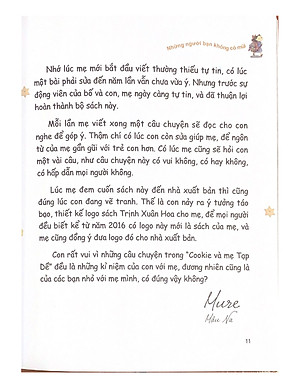 Những người bạn không có mũi
Nhớ lúc mẹ mới bắt đầu viết thường thiếu tự tin, có lúc
một bài phải sửa đến năm lần vẫn chưa vừa ý. Nhưng trước sự
động viên của bố và con, mẹ ngày càng tự tin, và đã thuận lợi
hoàn thành bộ sách này.
Mỗi lần mẹ viết xong một câu chuyện sẽ đọc cho con
nghe để góp ý. Thậm chí có lúc con còn sửa giúp mẹ, để ngôn
từ của mẹ gần gũi với trẻ con hơn. Có lúc mẹ cũng sẽ hỏi con
một vài câu, như câu chuyện này có vui không, có hay không,
có hấp dẫn mọi người không.
Lúc mẹ đem cuốn sách này đến nhà xuất bản thì cũng
đúng lúc con đang vẽ tranh. Thế là con nảy ra ý tưởng táo
bạo, thiết kế logo sách Trịnh Xuân Hoa cho mẹ, để mọi người
đều biết kể từ năm 2016 có logo này mới là sách của mẹ, và
mẹ cũng đồng ý đưa logo đó cho nhà xuất bản.
Con rất vui vì những câu chuyện trong “Cookie và mẹ Tạp
Dề” đều là những kỉ niệm của con với mẹ, đương nhiên cũng là
của các bạn nhỏ với mẹ mình, có đúng vậy không?
Mure
11